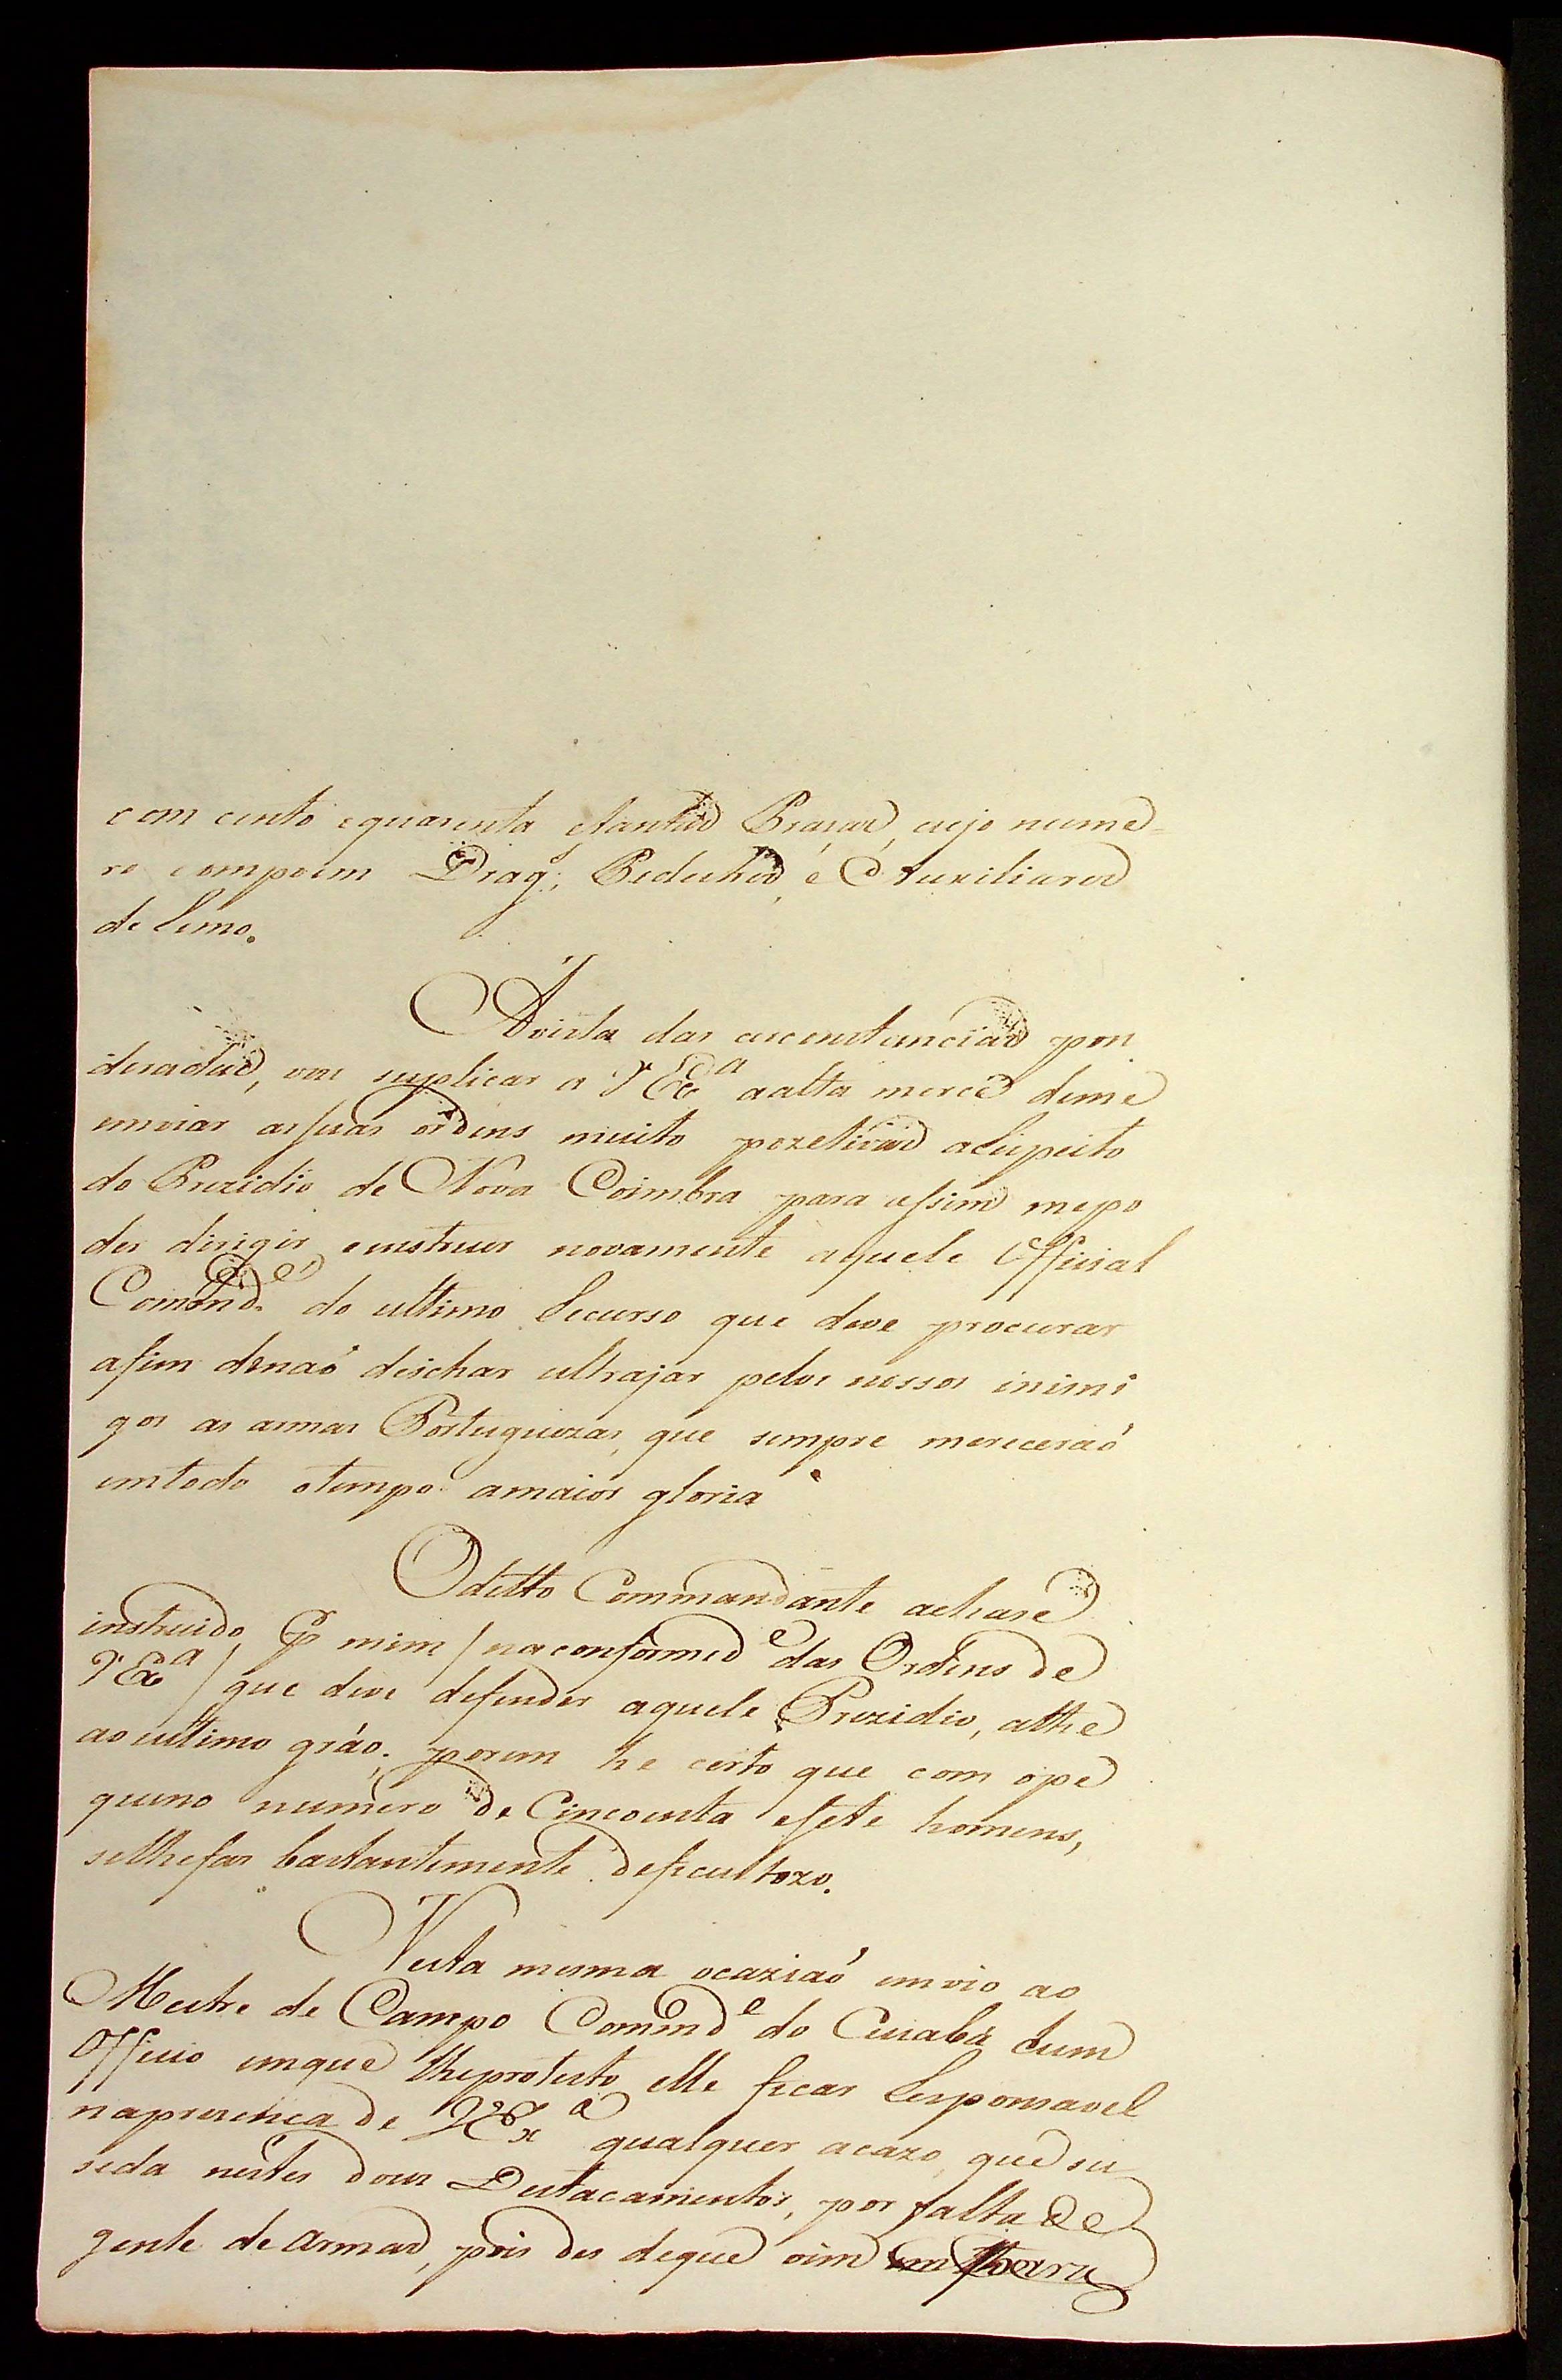 com cento equarenta etantas Prasas, cujo nume-
ro compoem Drag.^s, Pedestres, e Auxiliares
de Remo.
Avista das circonstancias pon
deradas, vou suplicar a V Ex^a aalta mercê deme
enviar assuas ordens muito pozetivas aRespeito
do Prezidio de Nova Coimbra para assim mepo
der dirigir, einstruir novamente aquele Official
Comand^e do ultimo Recurso que deve procurar
afim denaó deichar ultrajar pelos nossos inimi
gos as armas Portuguezas, que sempre mereceraó
emtodo otempo amaior gloria
Oditto Commandante achase
instruido p^r mim / naconformid^e das Ordens de
V Ex^a / que deve defender aquele Prezidio, athe
ao ultimo gráo, porem he certo que com ope
queno numero de Cincoenta esete homens,
selhefas bastantemente deficultozo.
Nesta mesma ocaziaó envio ao
Mestre de Campo Comend^e do Cuiabá hum
Officio emque lheprotesto elle ficar Responsavel
napresença de V Ex^a qualquer acazo, que su
seda néstes dous Destacamentos, por falta de
gente de armas, pois des deque vim para